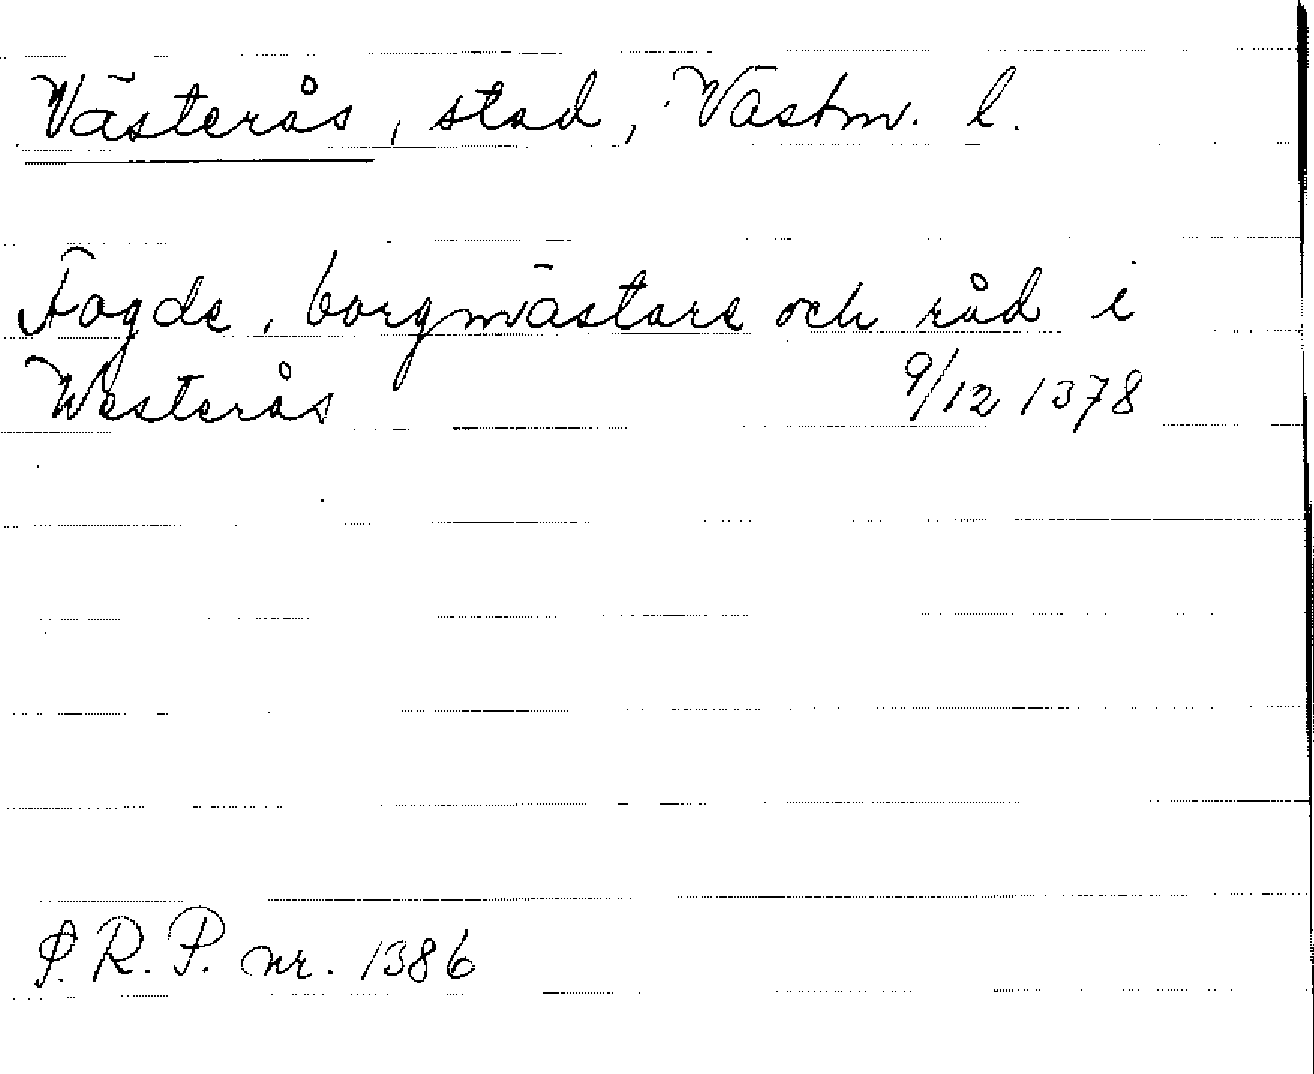 Västerås, stad, Västm. l.
Fogde, borgmästare och råd i
Westerås 9/12 1378
S.R.P. nr. 1386